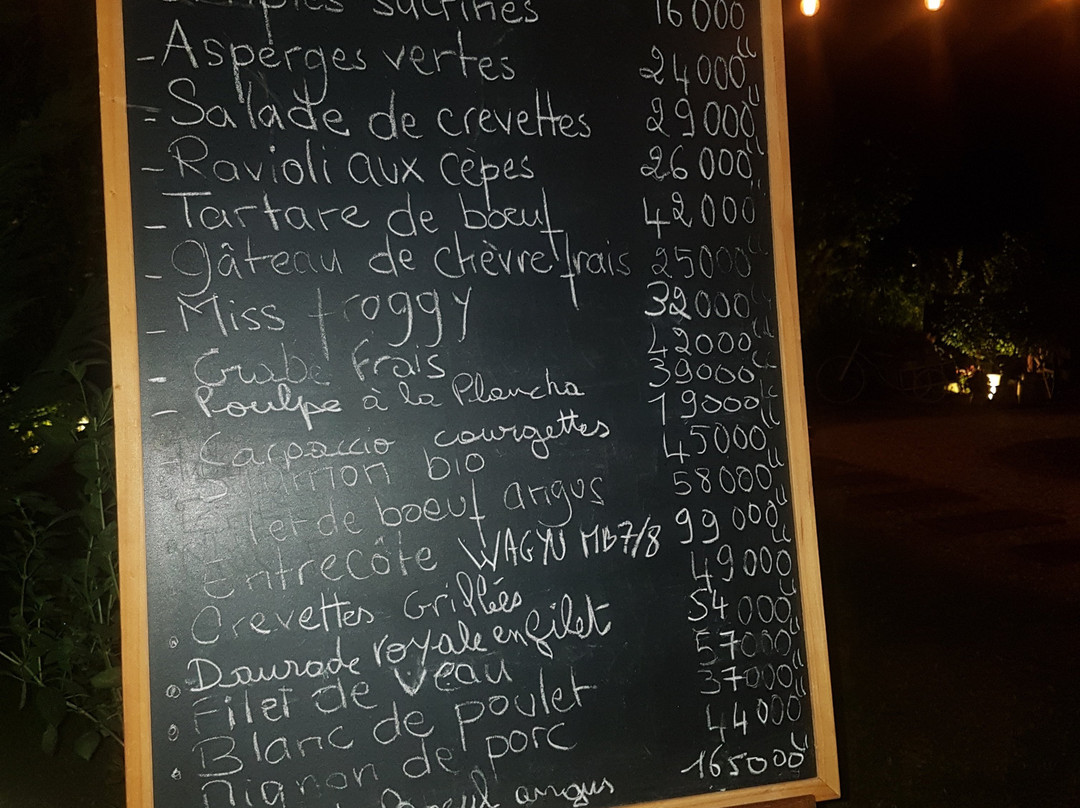 sucrines 16000"
- Asperges vertes 24000"
- Salade de crevettes 29000"
- Ravioli aux cèpes 26000"
- Tartare de bœuf 42000"
- gâteau de chèvre frais 25000"
- Miss froggy 32000"
- Crabe frais 42000"
- Poulpe à la Plancha 39000"
- Carpaccio courgettes 19000"
Saumon bio 45000"
Filet de boeuf angus 58000"
Entrecôte WAGYU MB7/8 99000"
Crevettes Grillées 49000
Daurade royale en filet 54000"
Filet de veau 57000"
Blanc de poulet 37000"
Mignon de porc 44000
boeuf angus 165000"